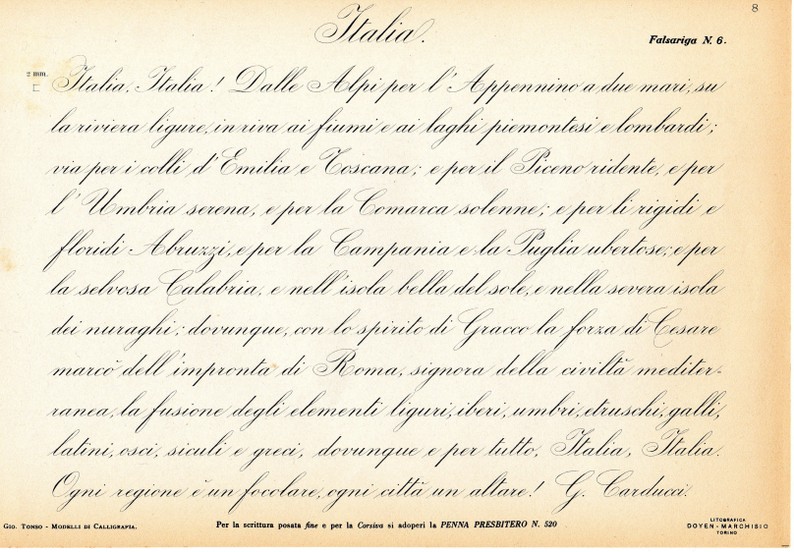 8
Italia.
Falsariga N. 6.
2 mm.
Italia, Italia! Dalle Alpi per l'Appennino a due mari, su
la riviera ligure, in riva ai fiumi e ai laghi piemontesi e lombardi;
via per i colli d'Emilia e Toscana; e per il Piceno ridente, e per
l'Umbria serena, e per la Comarca solenne; e per li rigidi e
floridi Abruzzi, e per la Campania e la Puglia ubertose; e per
la selvosa Calabria, e nell'isola bella del sole, e nella severa isola
dei nuraghi; dovunque, con lo spirito di Gracco la forza di Cesare
marcò dell'impronta di Roma, signora della civiltà mediter-
ranea, la fusione degli elementi liguri, iberi, umbri, etruschi, galli,
latini, osci, siculi e greci, dovunque e per tutto, Italia, Italia.
Ogni regione è un focolare, ogni città un altare! G. Carducci.
Gio. Tonso - Modelli di Calligrafia.
Per la scrittura posata fine e per la Corsiva si adoperi la PENNA PRESBITERO N. 520
LITOGRAFICA
DOYEN-MARCHISIO
TORINO